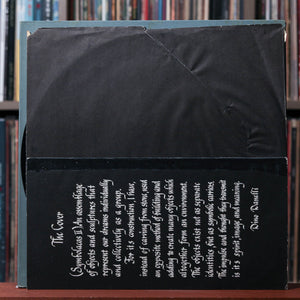 The Cover
(Symbiosis II) An assemblage
of objects and sculptures that
represent our dreams individually
and collectively as a group.
For its construction, I have,
instead of carving from stone, used
an opposite method of building and
adding to create many objects which
altogether form an environment.
The objects exist not as separate
identities but as symbolic carriers.
The sought and thought day-basement
is its spirit, image, and meaning.
Dino Danelli